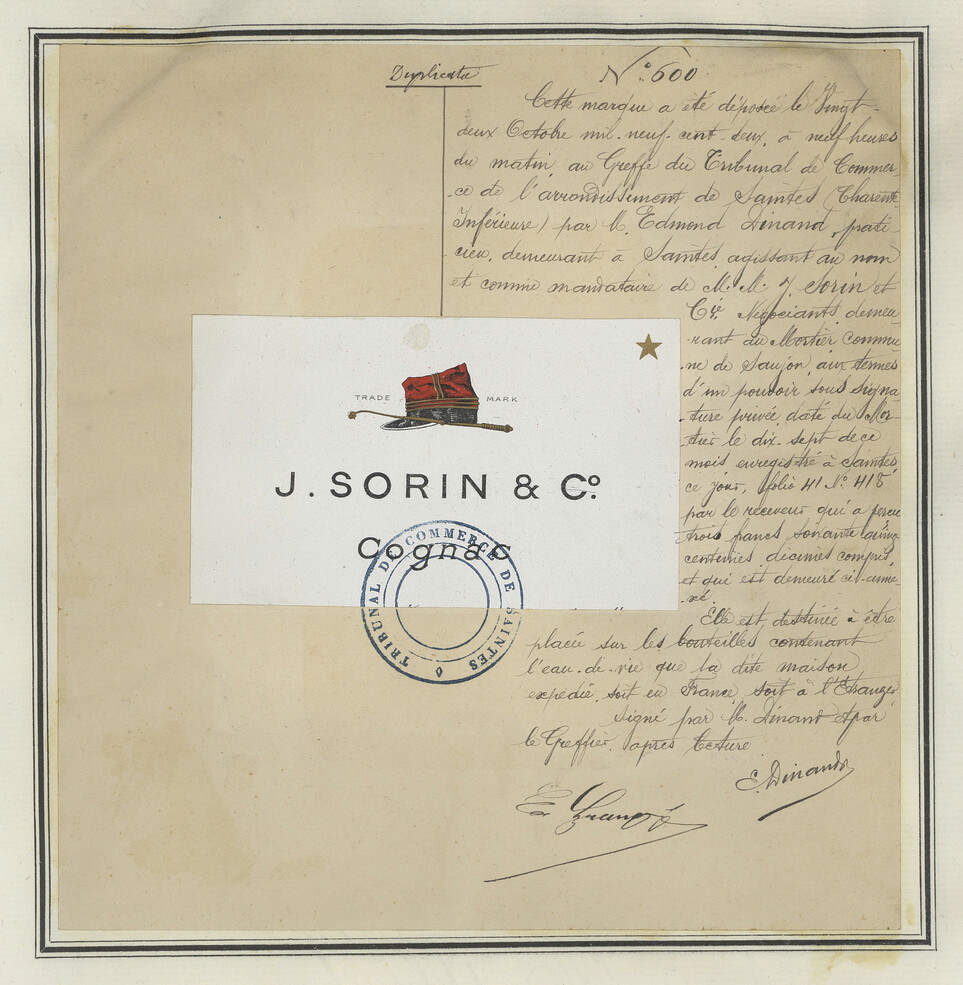 Duplicata
N° 600
Cette marque a été déposée le Vingt-
deux Octobre mil-neuf-cent-deux, à neuf heures
du matin, au Greffe du Tribunal de Commer-
-ce de l'arrondissement de Saintes (Charente
Inférieure) par M. Edmond Dinand, prati-
-cien, demeurant à Saintes, agissant au nom
et comme mandataire de M.M. J. Sorin et
Cie, Négociants, demeu-
-rant au Mortier commu-
-ne de Saujon, aux termes
d'un pouvoir sous signa-
-ture privée, daté du Mor-
-tier le dix-sept de ce
mois enregistré à Saintes,
ce jour, folio 41 N° 418
par le receveur qui a perçu
trois francs soixante quinze
centimes décimes compris,
et qui est demeuré ci-anne-
-xé.
TRADE MARK
J. SORIN & Co.
Cognac
TRIBUNAL DE COMMERCE DE SAINTES
Elle est destinée à être
placée sur les bouteilles contenant
l'eau-de-vie que la dite maison
expédie, soit en France, soit à l'Etranger
Signé par M. Dinand et par
le Greffier, après lecture
E. Dinand